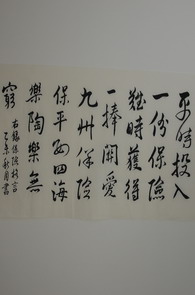 平時投入
一份保險
難時獲得
一捧關愛
九州保險
保平安四海
樂陶樂無
窮
右錄保險格言
乙未秋月書